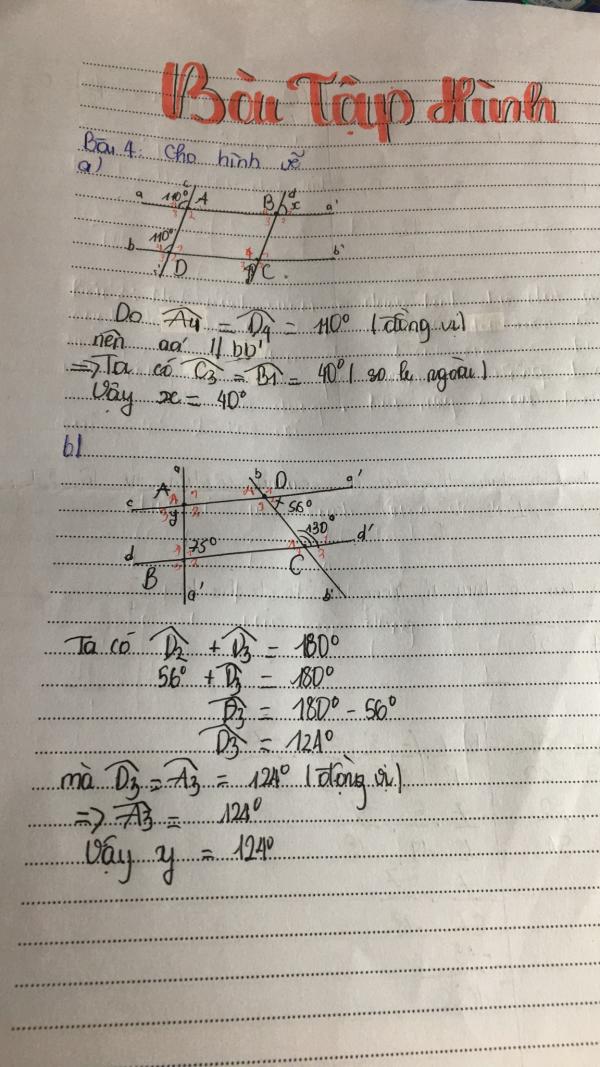 Bài Tập Hình
Bài 4: Cho hình vẽ
a)
c
d
a 110° A B x a'
4 3 2 3 2
110°
b 4 b'
D C
Do A4 = D4 = 110° (đồng vị)
nên aa' // bb'
=> Ta có C3 = B1 = 40° (so le ngoài)
Vậy x = 40°
b)
a b D a'
A 4 1 4 1
c 3 2 3 56°
y
130°
d 75° d'
B C
a' b'
Ta có D2 + D3 = 180°
56° + D3 = 180°
D3 = 180° - 56°
D3 = 124°
mà D3 = A3 = 124° (đồng vị)
=> A3 = 124°
Vậy y = 124°